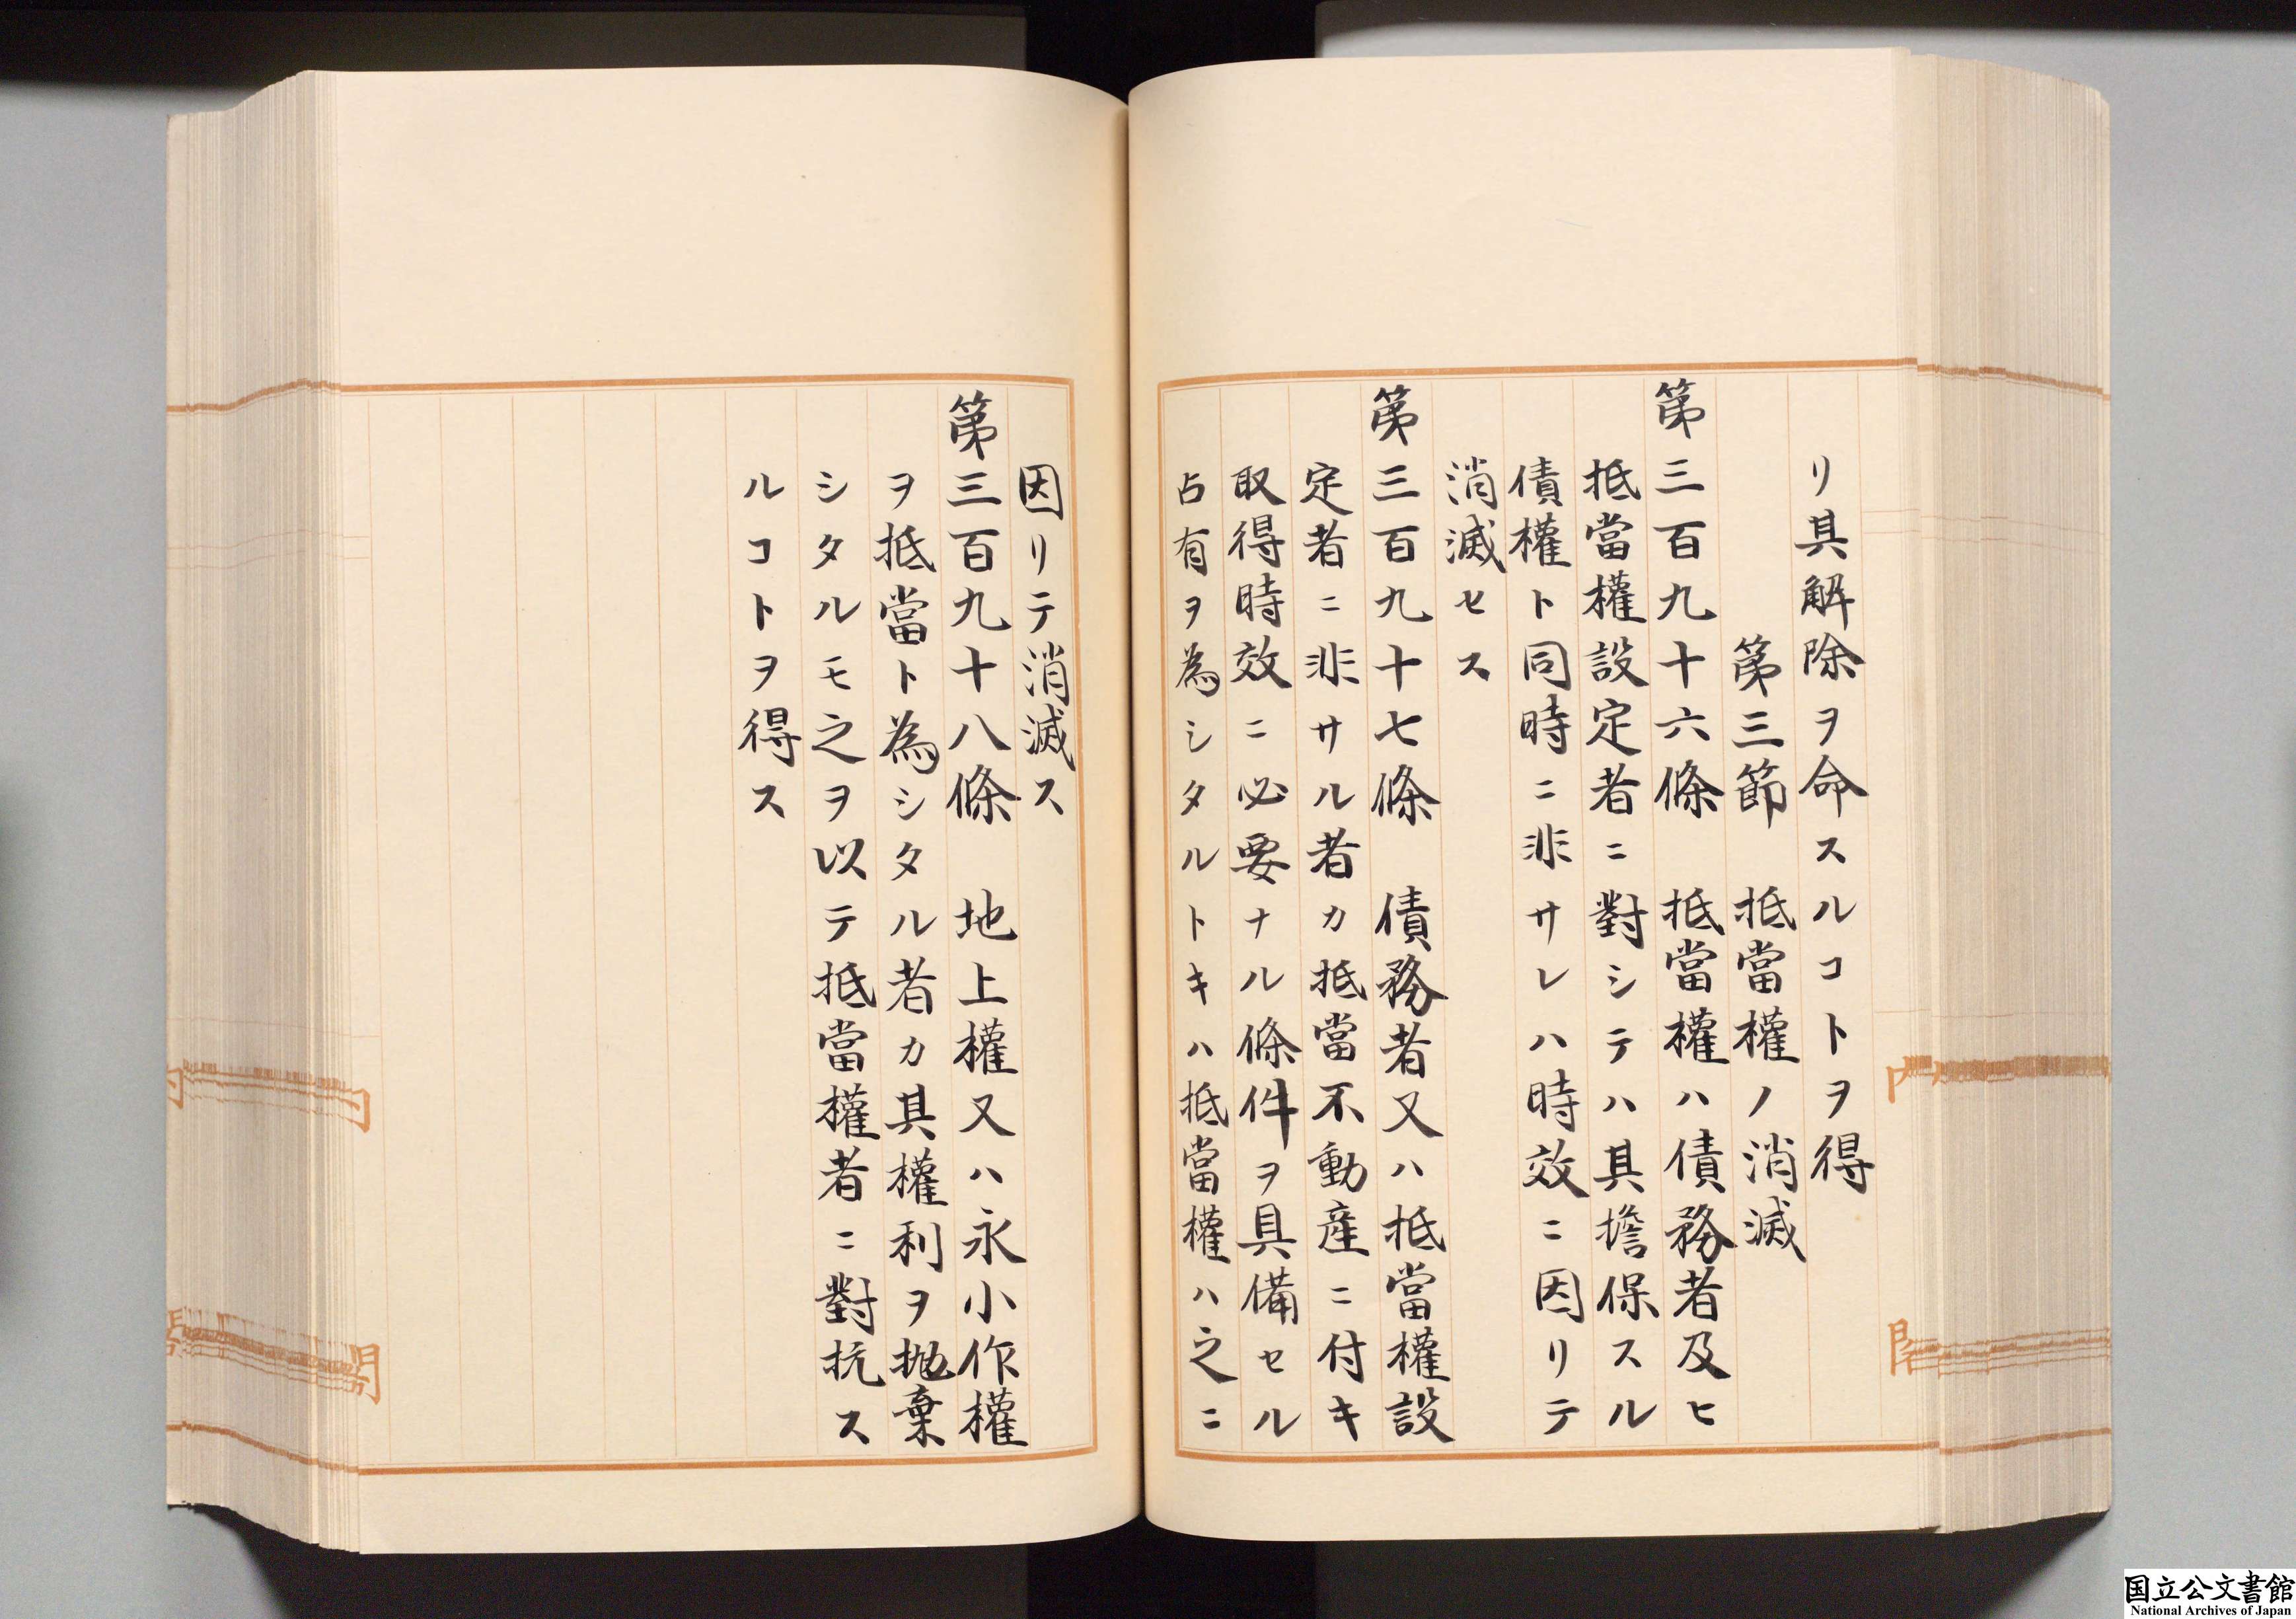 リ其解除ヲ命スルコトヲ得
第三節　抵當權ノ消滅
第三百九十六條　抵當權ハ債務者及ヒ
抵當權設定者ニ對シテハ其擔保スル
債權ト同時ニ非サレハ時效ニ因リテ
消滅セス
第三百九十七條　債務者又ハ抵當權設
定者ニ非サル者カ抵當不動産ニ付キ
取得時效ニ必要ナル條件ヲ具備セル
占有ヲ為シタルトキハ抵當權ハ之ニ
因リテ消滅ス
第三百九十八條　地上權又ハ永小作權
ヲ抵當ト為シタル者カ其權利ヲ抛棄
シタルモ之ヲ以テ抵當權者ニ對抗ス
ルコトヲ得ス
国立公文書館
National Archives of Japan